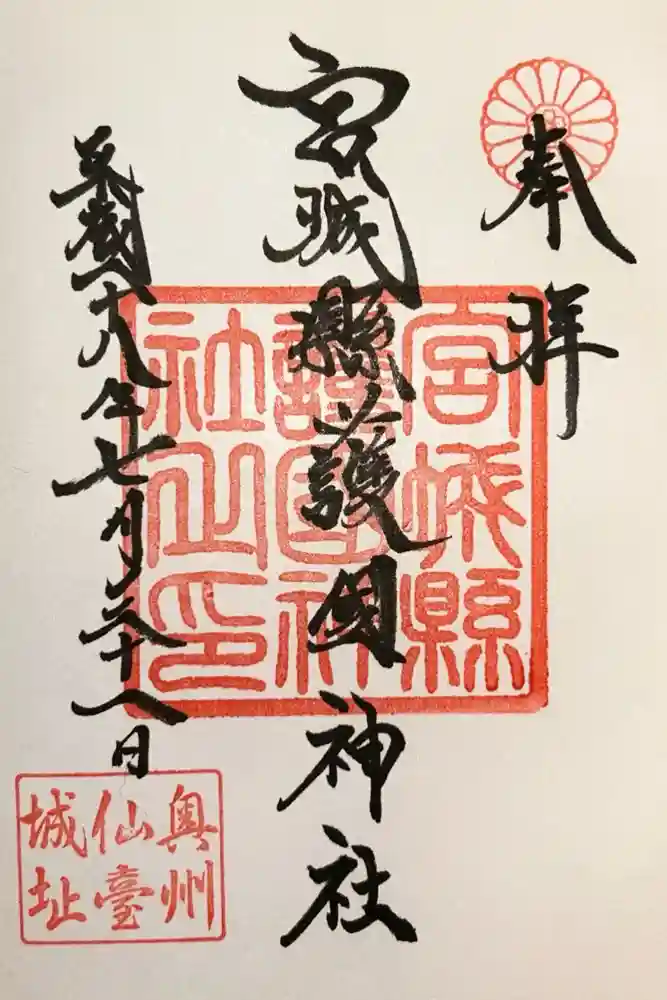 奉拝
宮城縣護國神社
平成二十八年七月十八日
宮城縣
護國神
社之印
奥州
仙臺
城址